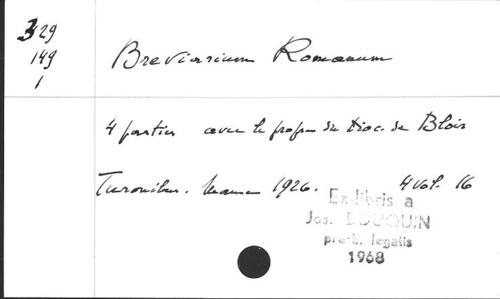 329
149
1
Breviarium Romanum
4 parties avec le propre du Dioc. de Blois
Turonibus. Mame 1926. 4 vol. 16
Ex-libris a
Jos. BOUQUIN
presb. legatis
1968